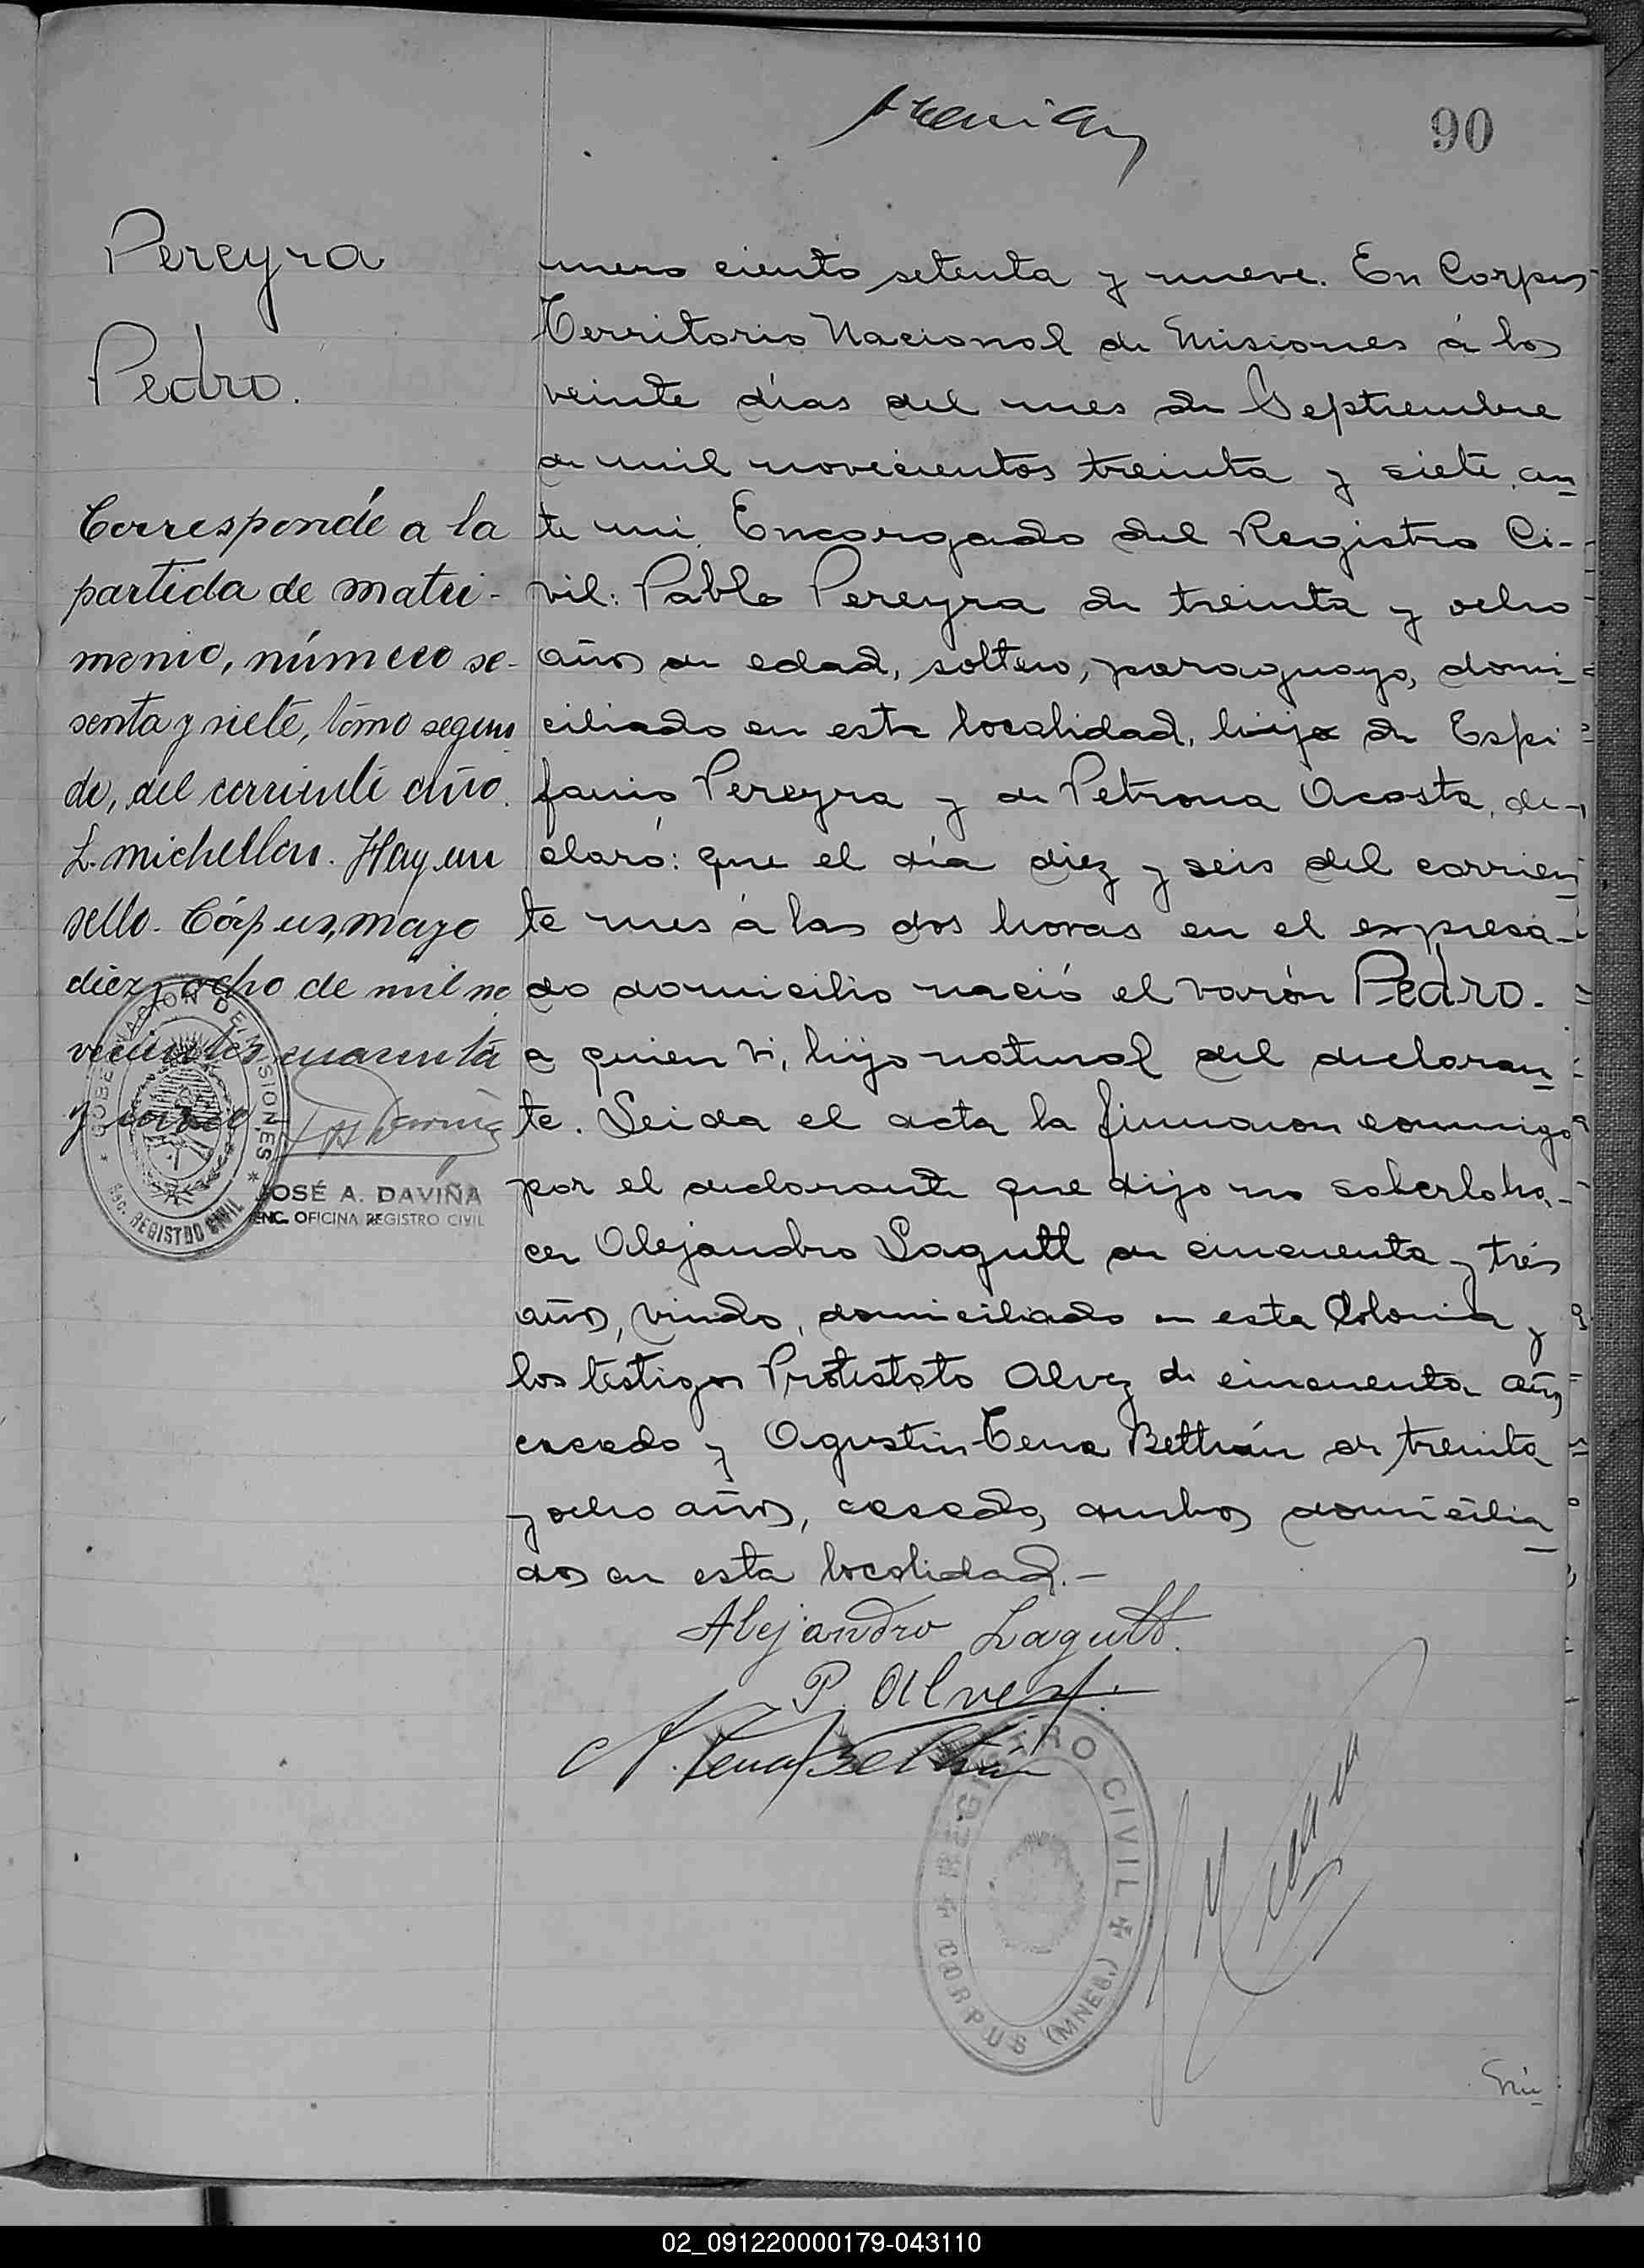 90
Pereyra
Pedro.
Corresponde a la
partida de matri-
monio, número se-
senta y siete, tomo segun
do, del corriente año.
L. Michellon. Hay un
sello. Córpus, mayo
diez y ocho de mil no
vecientos cuarenta
y
GOBERNACION DE MISIONES
Sec. REGISTRO CIVIL
JOSÉ A. DAVIÑA
ENC. OFICINA REGISTRO CIVIL
mero ciento setenta y nueve. En Corpus
Territorio Nacional de Misiones á los
veinte días del mes de Septiembre
de mil novecientos treinta y siete, an
te mi Encargado del Registro Ci-
vil: Pablo Pereyra de treinta y ocho
años de edad, soltero, paraguayo, domi-
ciliado en esta localidad, hijo de Espi
fanio Pereyra y de Petrona Acosta, de-
claró: que el día diez y seis del corrien
te mes á las dos horas en el expresa-
do domicilio nació el varón Pedro.
a quien vi, hijo natural del declaran
te. Leida el acta la firmaron conmigo
por el declarante que dijo no saberlo ha-
cer Alejandro Lagutt de cincuenta y trés
años, viudo, domiciliado en esta Colonia y
los testigos Protestato Alvez de cincuenta años
casado y Agustin Tena Beltrán de treinta
y ocho años, casado, ambos domicilia
dos en esta localidad.-
Alejandro Lagutt.
P. Alvez.
A. Tena Beltrán
REGISTRO CIVIL
CORPUS (MNES.)
Nú
02_091220000179-043110